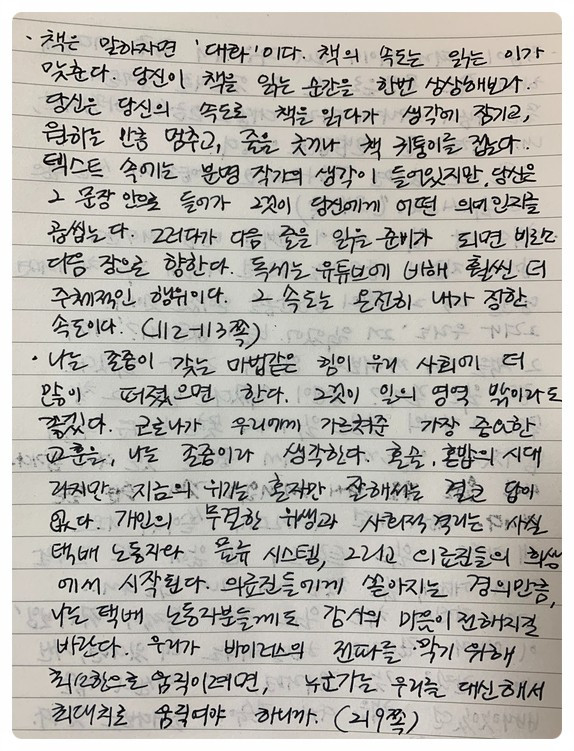 · 책은 말하자면 '대화'이다. 책의 속도는 읽는 이가
맞춘다. 당신이 책을 읽는 순간을 한번 상상해보라.
당신은 당신의 속도로 책을 읽다가 생각에 잠기고,
원하는 만큼 멈추고, 줄을 긋거나 책 귀퉁이를 접는다.
텍스트 속에는 분명 작가의 생각이 들어있지만, 당신은
그 문장 안으로 들어가 그것이 당신에게 어떤 의미인지를
곱씹는다. 그러다가 다음 줄을 읽을 준비가 되면 비로소
다음 장으로 향한다. 독서는 유튜브에 비해 훨씬 더
주체적인 행위이다. 그 속도는 온전히 내가 정한
속도이다. (112-113쪽)
· 나는 존중이 갖는 마법같은 힘이 우리 사회에 더
많이 퍼졌으면 한다. 그것이 일의 영역 밖이라도
좋겠다. 코로나가 우리에게 가르쳐준 가장 중요한
교훈을, 나는 존중이라 생각한다. 혼술, 혼밥의 시대
라지만, 지금의 위기는 혼자만 잘해서는 결코 답이
없다. 개인의 무결한 위생과 사회적 격리는 사실
택배 노동자와 물류 시스템, 그리고 의료진들의 희생
에서 시작된다. 의료진들에게 쏟아지는 경의만큼,
나는 택배 노동자분들께도 감사의 마음이 전해지길
바란다. 우리가 바이러스의 전파를 막기 위해
최소한으로 움직이려면, 누군가는 우리를 대신해서
최대치로 움직여야 하니까. (219쪽)